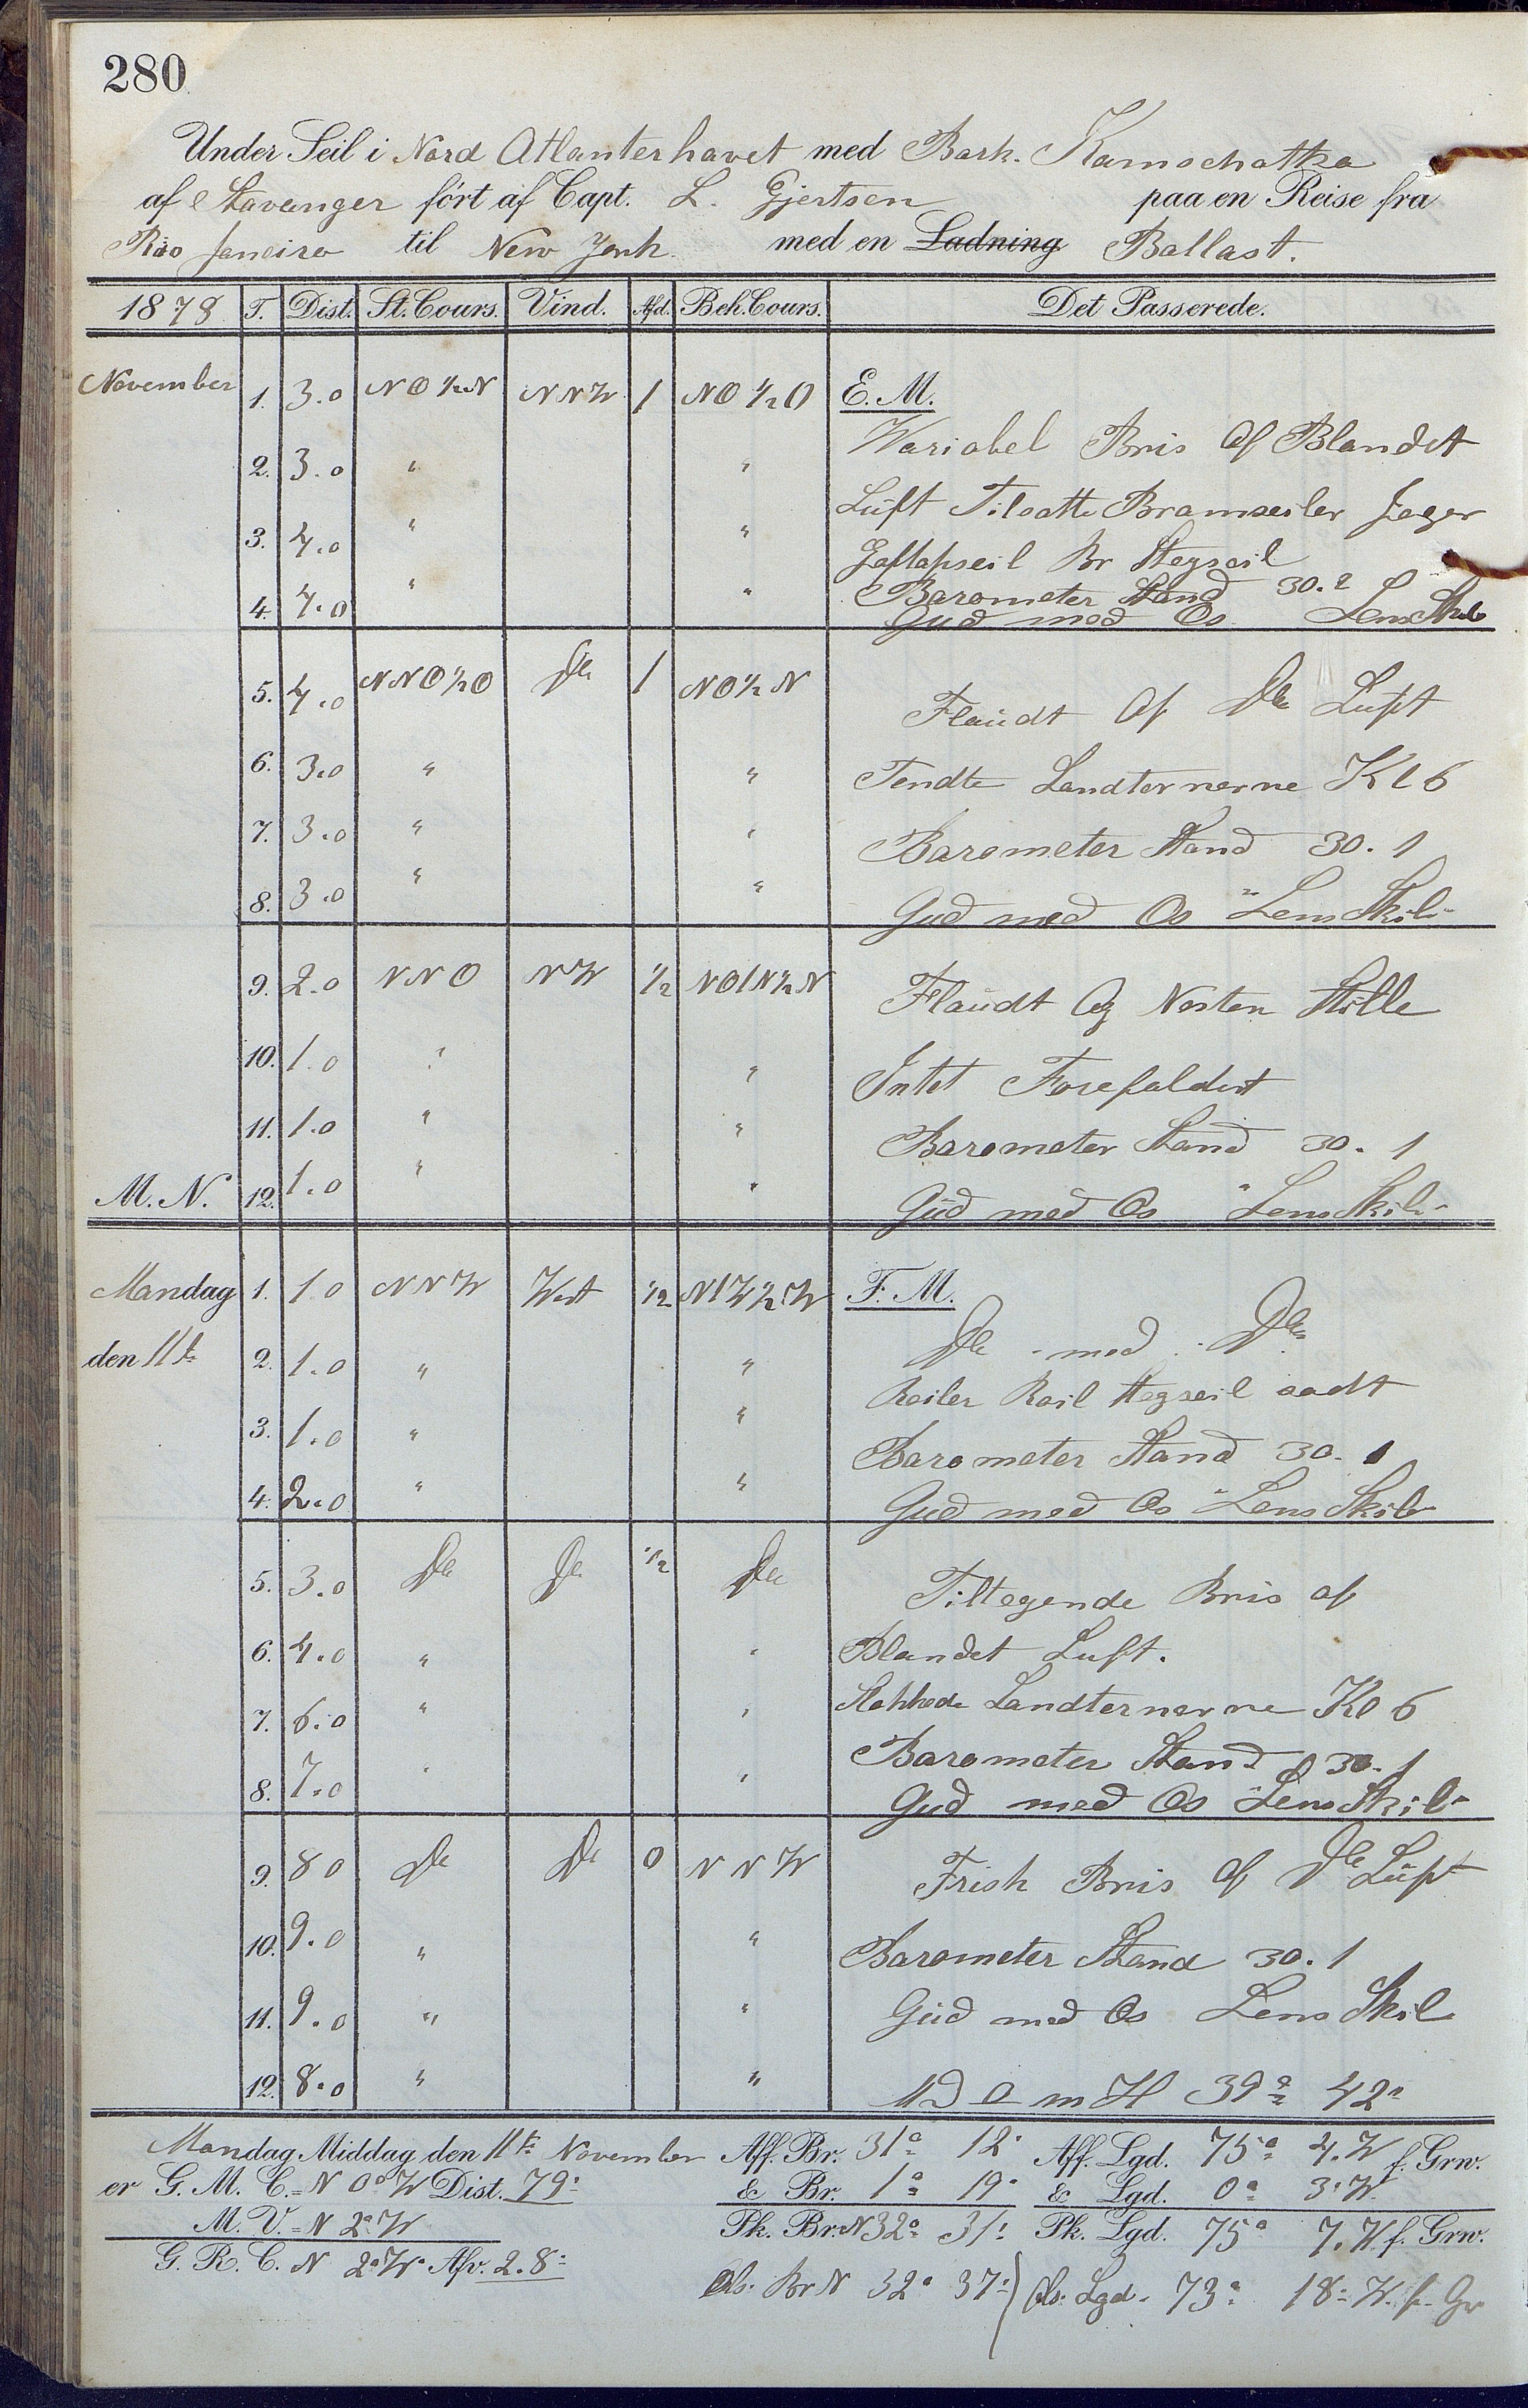 280
Under Seil i Nord Atlanterhavet med Bark. Kamschatka
af Stavanger fört af Capt. L. Gjertsen paa en Reise fra
Rio Janeiro til New York med en Ladning Ballast.
1878 T. Dist. St. Cours. Vind. Afd. Beh. Cours. Det Passerede.
November 1. 3.0 NO 1/2 N NNW 1 NO 1/2 O E. M.
Wariabel Bris Af Blandet
2. 3.0 " "
Luft Tilsatte Bramseiler Jager
3. 4.0 " "
Gaflapseil Br Stagseil
Barometer Stand 30.2
4. 4.0 " "
Gud med Os Lens Skib
5. 4.0 NNO 1/2 O Do 1 NO 1/2 N
Flaudt Af Do Luft
6. 3.0 " " Tendte Landternerne Kl 6
7. 3.0 " " Barometer Stand 30.1
8. 3.0 " " Gud med Os Lens Skib
9. 2.0 NNO NW 1/2 NO/N 1/2 N Flaudt Og Nesten Stille
10. 1.0 " " Intet Forefaldent
11. 1.0 " " Barometer Stand 30.1
M. N. 12. 1.0 " " Gud med Os Lens Skib
Mandag 1. 1.0 NNW West 1/2 N/W 1/2 W F. M.
Do med Do
den 11te 2. 1.0 " "
Roiler Roil Stagseil
3. 1.0 " " Barometer Stand 30.1
4. 2.0 " " Gud med Os Lens Skib
5. 3.0 Do Do 1/2 Do Tiltagende Bris af
6. 4.0 " " Blandet Luft.
7. 6.0 " " Slokkede Landternerne Kl 6
Barometer Stand 30.1
8. 7.0 " " Gud med Os Lens Skib
9. 8.0 Do Do 0 NNW Frisk Bris af Do Luft
10. 9.0 " " Barometer Stand 30.1
11. 9.0 " " Gud med Os Lens Skib
12. 8.0 " " m H 39° 42'
Mandag Middag den 11te November Aff. Br. 31° 12' Aff. Lgd. 75° 4' W f. Grw.
er G. M. C. = N 0° W Dist. 79' & Br. 1° 19' & Lgd. 0° 3' W
M. V. = N 2° W Pk. Br. N 32° 31' Pk. Lgd. 75° 7' W f. Grw.
G. R. C. N 2° W Afv. 2.8'
Obs. Br N 32° 37' Obs. Lgd. 73° 18' W. f. Gr